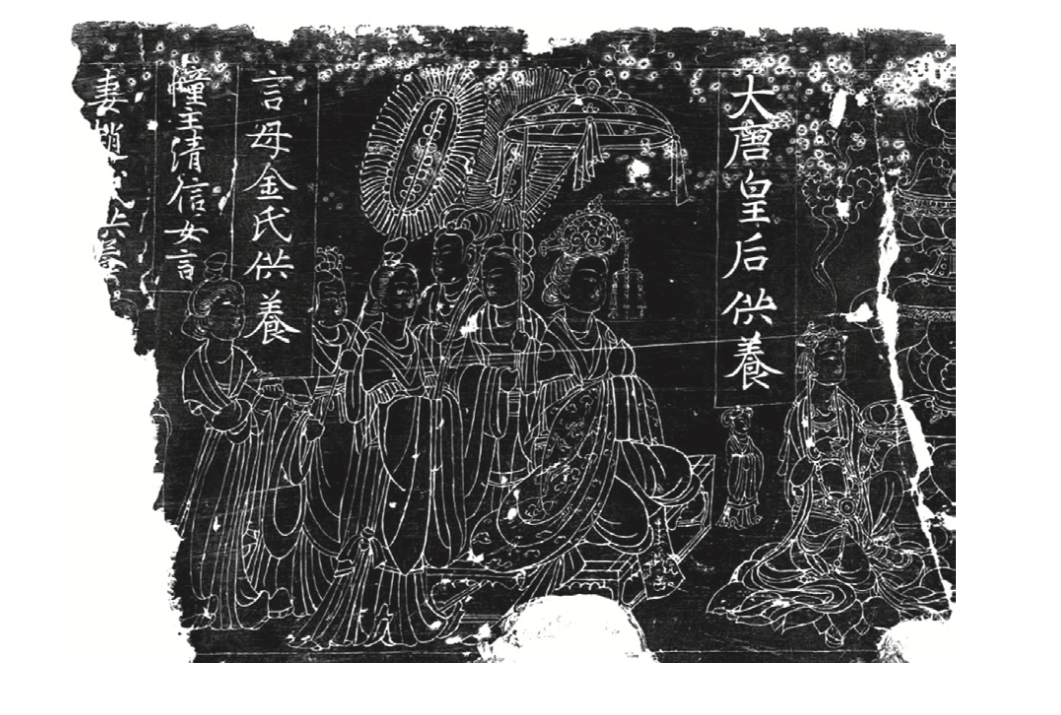 大唐皇后供養
言母金氏供養
幢主清信女言
妻趙氏供養